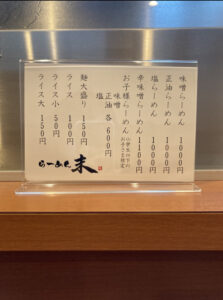 味噌らーめん 1000円
正油らーめん 1000円
塩らーめん 1000円
辛味噌らーめん 1100円
お子様らーめん 小学生以下のお子さま限定
味噌 正油 塩 各600円
麺大盛り 150円
ライス小 100円
ライス 50円
ライス大 150円
らーめん 末